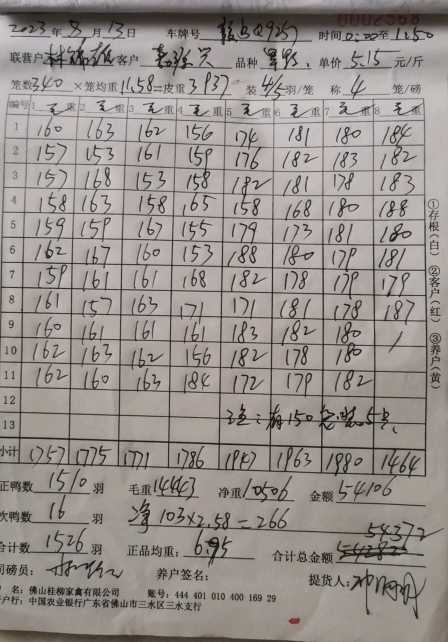 0002368
2023年8月13日 车牌号 时间0:00至1:50
联营户 客户 品种 单价5.15元/斤
笼数340×笼均重11.58=皮重3937 装4/5羽/笼 称4笼/磅
编号 1 毛重 2 毛重 3 毛重 4 毛重 5 毛重 6 毛重 7 毛重 8 毛重
1 160 163 162 156 174 181 180 184
2 157 153 161 159 176 182 183 182
3 157 168 153 158 182 181 178 183
4 158 163 158 165 158 168 180 188
5 159 159 167 155 179 173 181 180
6 162 167 160 153 188 180 179 181
7 159 161 161 168 182 178 179 179
8 161 157 163 171 171 181 178 187
9 160 161 161 161 183 182 180 /
10 162 163 162 156 182 178 180
11 162 160 163 184 172 179 182
12 注:有150笼装5只
13
小计 1757 1775 1771 1786 1947 1963 1980 1464
正鸭数1510羽 毛重14443 净重10506 金额54106
次鸭数16羽 净103×2.58=266
54372
合计数1526羽 正品均重:6.95 合计总金额
司磅员: 养户签名: 提货人:
名:佛山桂柳家禽有限公司 账号:444 401 010 400 169 29
户行:中国农业银行广东省佛山市三水区三水支行
①存根(白) ②客户(红) ③养户(黄)